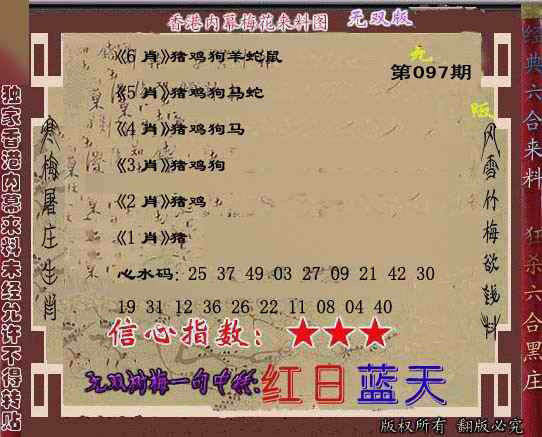 香港内幕梅花来料图 无双版
《6 肖》猪鸡狗羊蛇鼠
无
第097期
《5 肖》猪鸡狗马蛇
版
《4 肖》猪鸡狗马
《3 肖》猪鸡狗
《2 肖》猪鸡
《1 肖》猪
心水码: 25 37 49 03 27 09 21 42 30
19 31 12 36 26 22 11 08 04 40
信心指数: ★★★
红日蓝天
独家香港内幕来料未经允许不得转贴
寒梅屠庄生肖
风雪竹梅欲钱料
经典六合来料 狂杀六合黑庄
版权所有 翻版必究